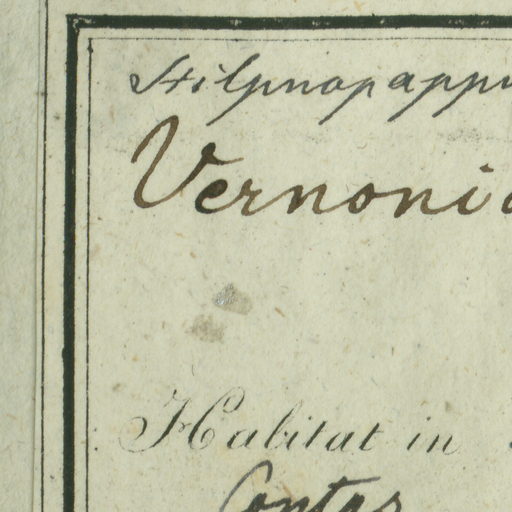 Stilpnopappu
Vernonia
Habitat in
Contas